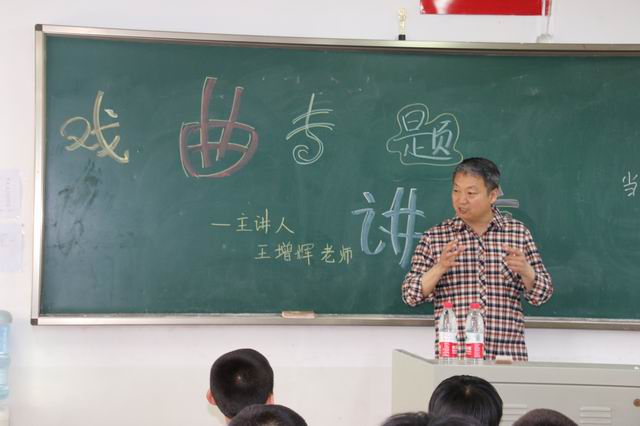 戏曲专题
讲
当
—主讲人
王增辉老师